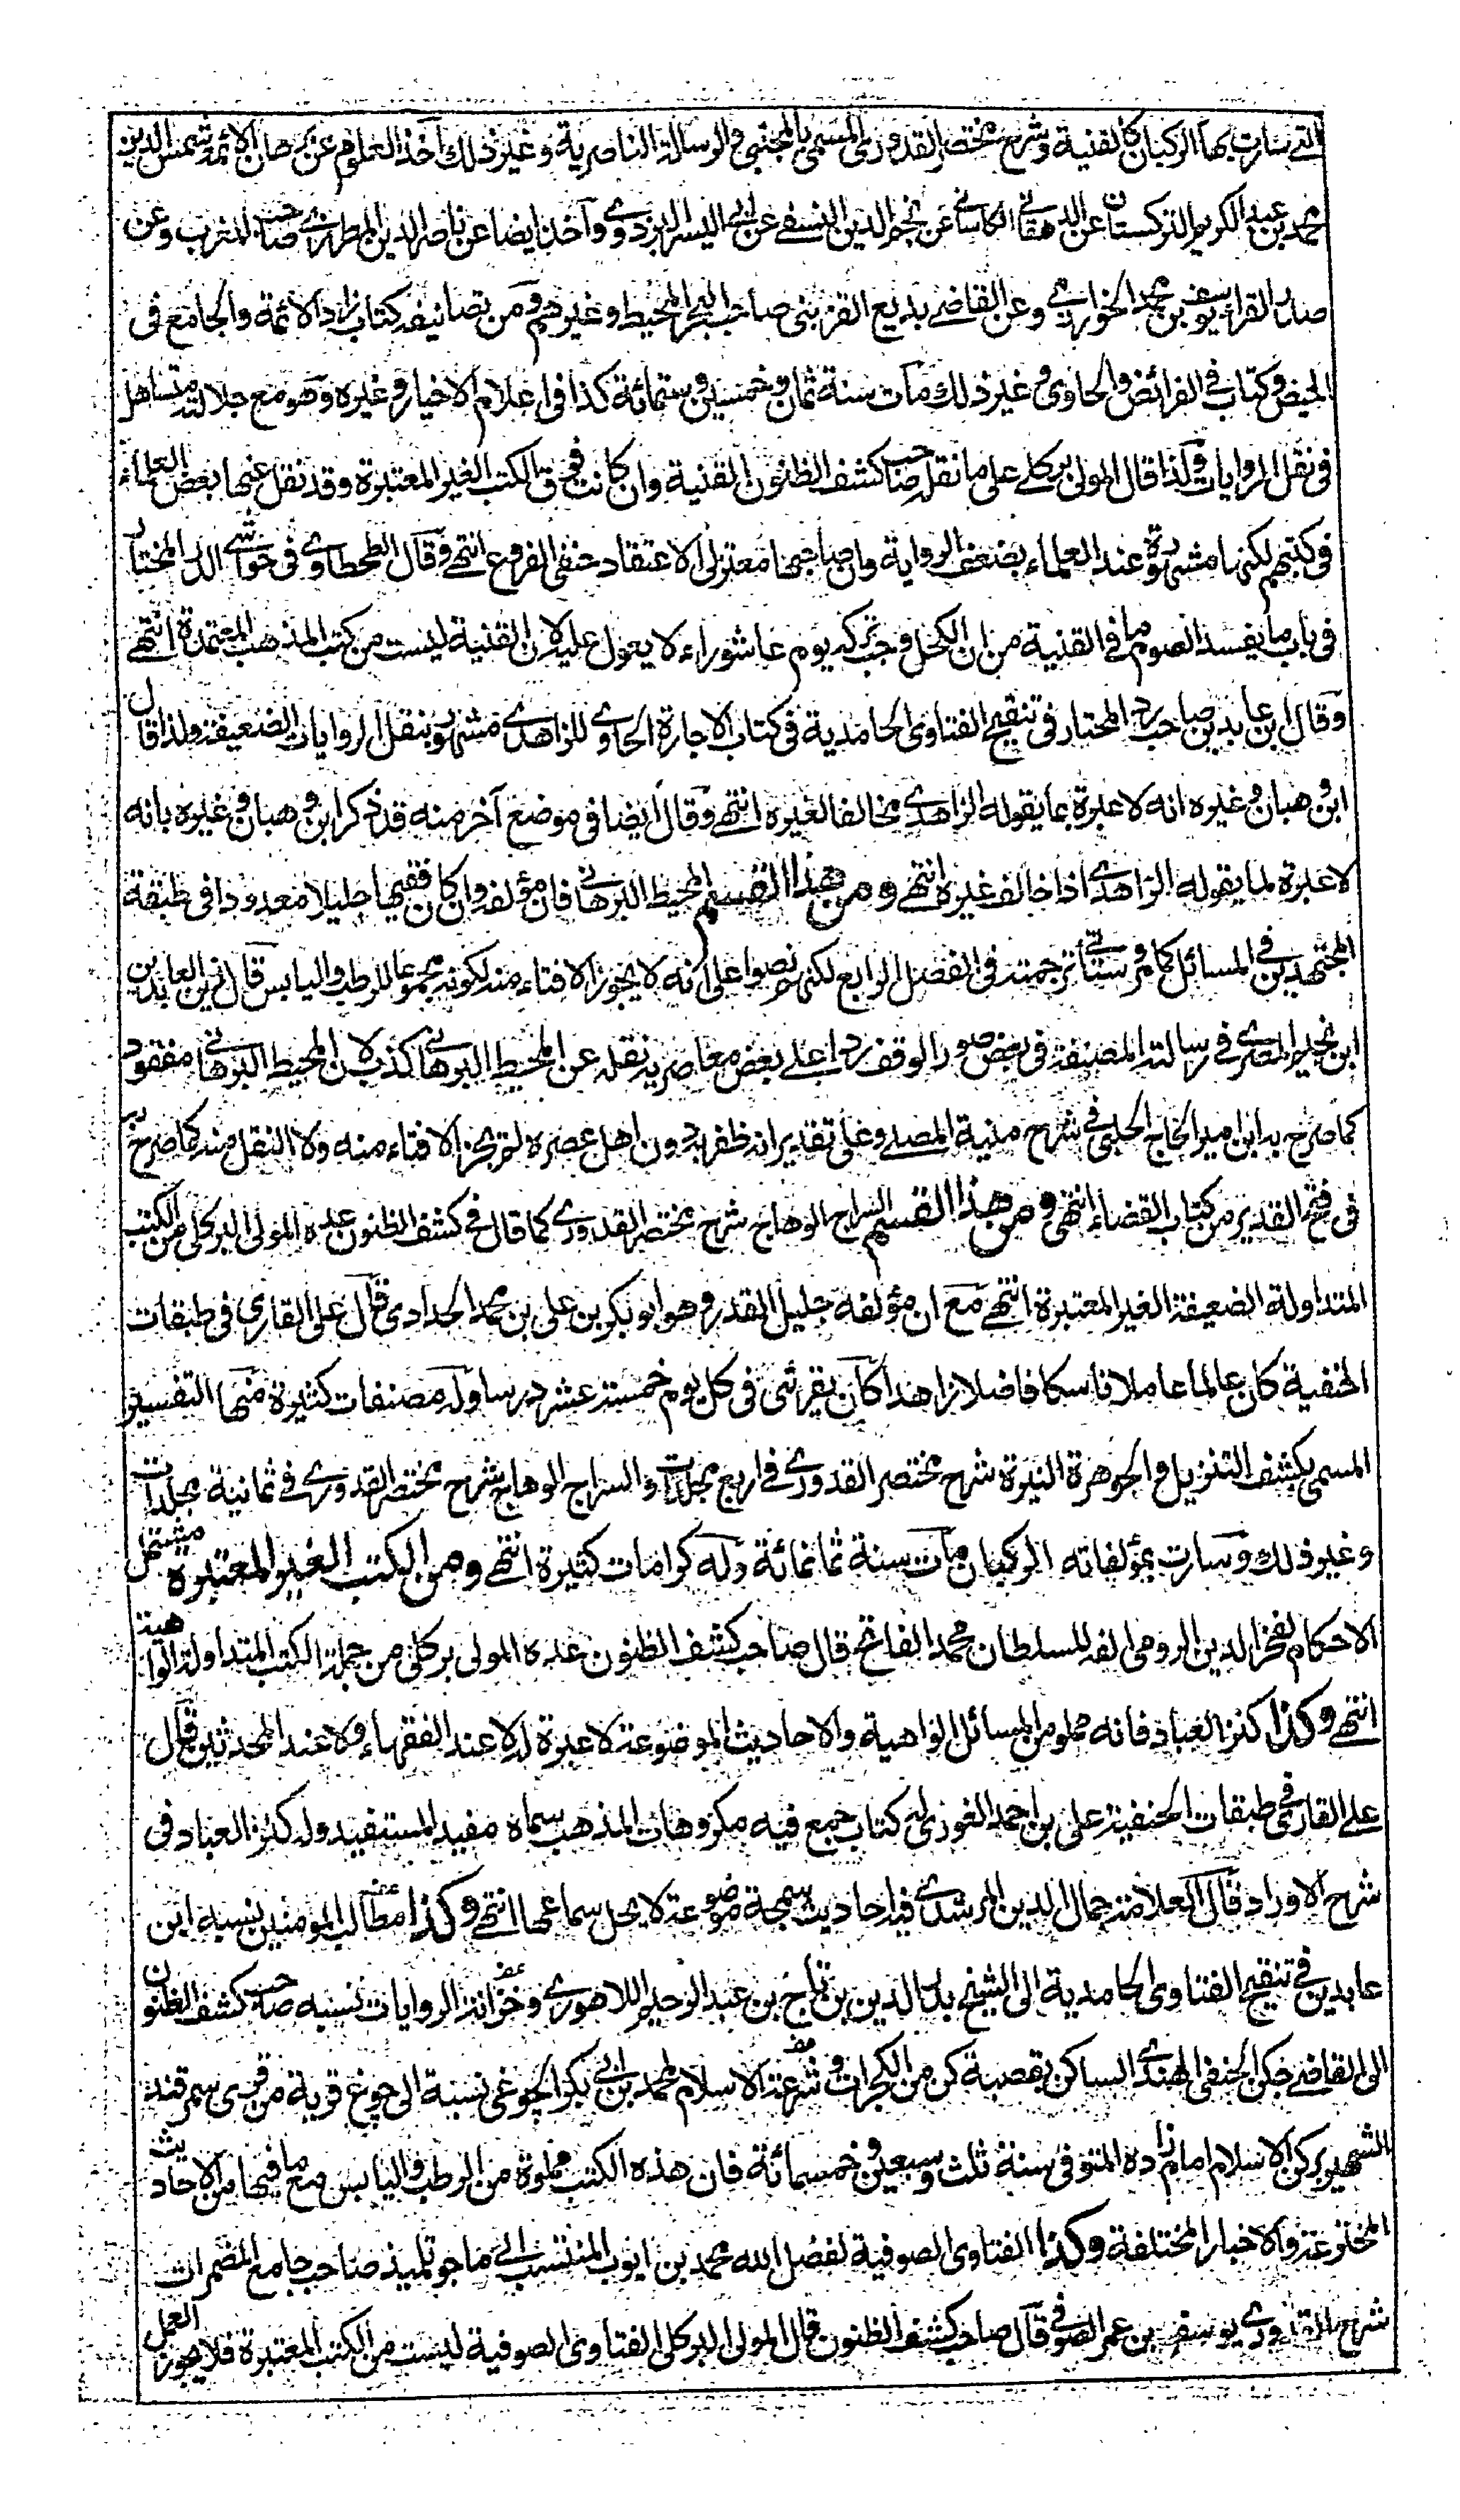 التي سارت بها الركبان كالقنية وشرح مختصر القدوري المسمى بالمجتبى والرسالة الناصرية وغير ذلك اخذ العلوم عن برهان الائمة شمس الدين
محمد بن عبد الكريم التركستاني عن الدهقاني الكاساني عن نجم الدين النسفي عن ابي اليسر البزدوي وآخذ ايضا عن ناصر الدين المطرزي صاحب المغرب وعن
صدر القراء يوسف بن محمد الخوارزمي وعن القاضي بديع القزبني صاحب البحر المحيط وغيرهم ومن تصانيفه كتاب زاد الائمة والجامع في
الحيض وكتاب في الفرائض والحاوي وغير ذلك مات سنة ثمان وخمسين وستمائة كذا في اعلام الاخيار وغيره وهو مع جلالته متساهل
في نقل الروايات ولذا قال المولى بركلي على ما نقله صاحب كشف الظنون القنية وان كانت فوق الكتب الغير المعتبرة وقد نقل عنها بعض العلماء
في كتبهم لكنها مشهورة عند العلماء بضعف الرواية وان صاحبها معتزلي الاعتقاد حنفي الفروع انتهى وقال الطحطاوي في حواشي الدر المختار
في باب ما يفسد الصوم ما في القنية من ان الكحل وجب تركه يوم عاشوراء لا يعول عليه لان القنية ليست من كتب المذهب المعتمدة انتهى
وقال ابن عابدين صاحب رد المحتار في تنقيح الفتاوى الحامدية في كتاب الاجارة الحاوي للزاهدي مشهور بنقل الروايات الضعيفة ولذا قال
ابن وهبان وغيره انه لا عبرة بما يقوله الزاهدي مخالفا لغيره انتهى وقال ايضا في موضع آخر منه قد ذكر ابن وهبان وغيره بانه
لا عبرة لما يقوله الزاهدي اذا خالف غيره انتهى ومن هذا القسم المحيط البرهاني فان مؤلفه وان كان فقيها جليلا معدودا في طبقة
المجتهدين في المسائل كما مر وستأتي ترجمته في الفصل الرابع لكنهم نصوا على انه لا يجوز الافتاء منه لكونه مجموعا للرطب واليابس قال زين العابدين
ابن نجيم المصري في رسالته المصنفة في بعض صور الوقف ردا على بعض معاصريه نقله عن المحيط البرهاني كذب لان المحيط البرهاني مفقود
كما صرح به ابن امير الحاج الحلبي في شرح منية المصلي وعلى تقدير انه ظفر به دون اهل عصره لم يجز الافتاء منه ولا النقل منه كما صرح به
في فتح القدير من كتاب القضاء انتهى ومن هذا القسم السراج الوهاج شرح مختصر القدوري كما قال في كشف الظنون عده المولى البركلي من الكتب
المتداولة الضعيفة الغير المعتبرة انتهى مع ان مؤلفه جليل القدر وهو ابو بكر بن علي بن محمد الحدادي قال علي القاري في طبقات
الحنفية كان عالما عاملا ناسكا فاضلا زاهدا كان يقرئ في كل يوم خمسة عشر درسا وله مصنفات كثيرة منها التفسير
المسمى بكشف التنزيل والجوهرة النيرة شرح مختصر القدوري في اربع مجلدات والسراج الوهاج شرح مختصر القدوري في ثمانية مجلدات
وغير ذلك وسارت بمؤلفاته الركبان مات سنة ثمانمائة وله كرامات كثيرة انتهى ومن الكتب الغير المعتبرة مشتمل
الاحكام لفخر الدين الرومي الفه للسلطان محمد الفاتح قال صاحب كشف الظنون عده المولى بركلي من جملة الكتب المتداولة الواهية
انتهى وكذا كنز العباد فانه مملو من المسائل الواهية والاحاديث الموضوعة لا عبرة له لا عند الفقهاء ولا عند المحدثين قال
علي القاري في طبقات الحنفية علي بن احمد الغوري له كتاب جمع فيه مكروهات المذهب سماه مفيد المستفيد وله كنز العباد في
شرح الاوراد قال العلامة جمال الدين المرشدي فيه احاديث سمجة موضوعة لا يحل سماعها انتهى وكذا مطالب المومنين نسبه ابن
عابدين في تنقيح الفتاوى الحامدية الى الشيخ بدر الدين بن تاج بن عبد الرحيم اللاهوري وخزانة الروايات نسبه صاحب كشف الظنون
الى القاضي جكن الحنفي الهندي الساكن بقصبة كن من الكجرات وشرعة الاسلام لمحمد بن ابي بكر الجوغي نسبة الى جوغ قرية من قرى سمرقند
الشهير بركن الاسلام امام زاده المتوفى سنة ثلث وسبعين وخمسمائة فان هذه الكتب مملوة من الرطب واليابس مع ما فيها من الاحاديث
المخترعة والاخبار المختلفة وكذا الفتاوى الصوفية لفضل الله محمد بن ايوب المنتسب الى ماجو تلميذ صاحب جامع المضمرات
شرح القدوري يوسف بن عمر الصوفي قال صاحب كشف الظنون قال المولى البركلي الفتاوى الصوفية ليست من الكتب المعتبرة فلا يجوز العمل